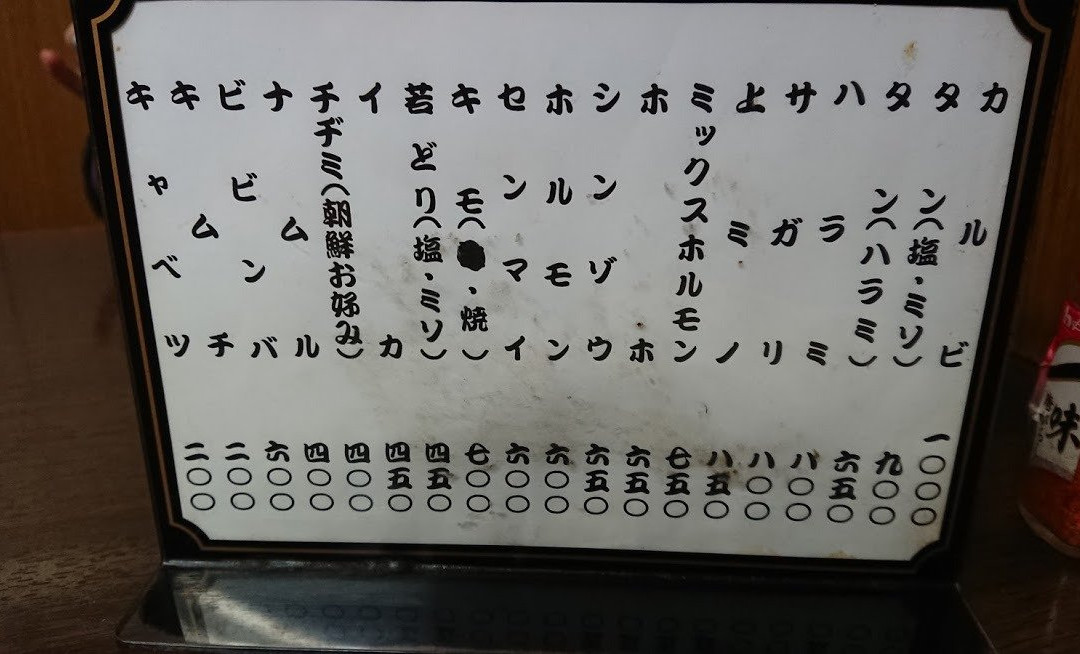 カルビ 一〇〇〇
タン(塩・ミソ) 九〇〇
タン(ハラミ) 六五〇
ハラミ 八〇〇
サガリ 八〇〇
上ミノ 八五〇
ミックスホルモン 七五〇
ホホ 六五〇
シンゾウ 六五〇
ホルモン 六〇〇
センマイ 六〇〇
キモ(・焼) 七〇〇
若どり(塩・ミソ) 四五〇
イカ 四五〇
チヂミ(朝鮮お好み) 四〇〇
ナムル 四〇〇
ビビンバ 六〇〇
キムチ 二〇〇
キャベツ 二〇〇
味